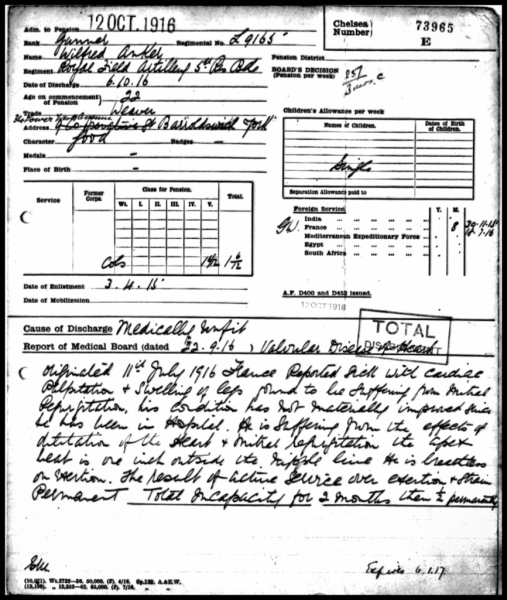 Adm. to Pension 12 OCT. 1916
Chelsea Number} 73965 E
Rank Gunner Regimental No. L 9165
Name Wilfred Anker
Regiment Royal Field Artillery 5th
Pension District
Date of Discharge 6.10.16
BOARD'S DECISION (Pension per week) 25/-
Age on commencement of Pension} 22
Trade Weaver
Address Barnoldswick York
Character Good Badges —
Medals —
Place of Birth —
Children's Allowance per week
Names of Children. Dates of Birth of Children.
Single
Separation Allowance paid to
Service Former Corps. Class for Pension. Total.
Wt. I. II. III. IV. V.
Cols 1 6/12 1 6/12
Foreign Service Y. M.
India
France 8 30-11-15
Mediterranean Expeditionary Force
Egypt
South Africa
Date of Enlistment 3.4.15
Date of Mobilization
A.F. D400 and D453 issued.
12 OCT 1916
Cause of Discharge Medically Unfit
TOTAL
Report of Medical Board (dated 22.9.16) Valvular Disease of Heart
Originated 11th July 1916 France Reported Sick with cardiac
Palpitation & Swelling of legs found to be suffering from Mitral
Regurgitation, his condition has not materially improved since
he has been in Hospital. He is Suffering from the effects of
dilatation of the Heart & Mitral regurgitation the apex
beat is one inch outside the nipple line He is breathless
on exertion. The result of active Service over exertion & strain
Permanent Total Incapacity for 2 months then ½ permanently
Expires 6.1.17